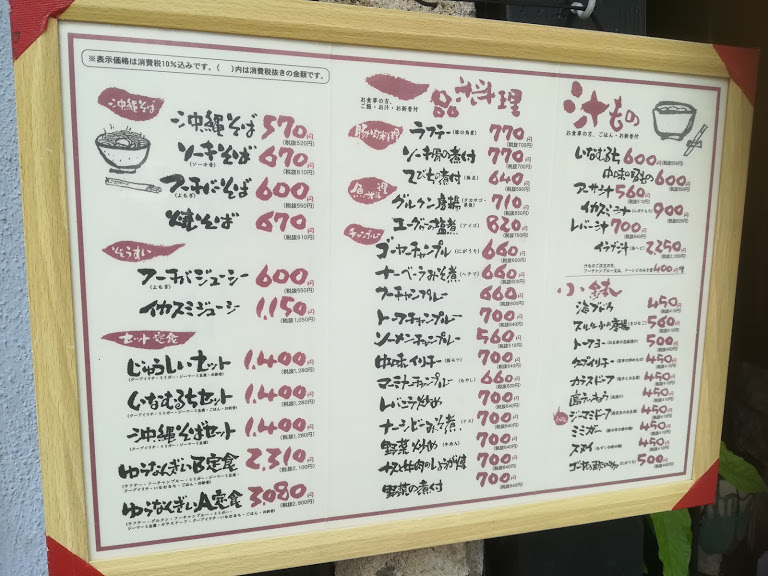 ※表示価格は消費税10%込みです。(　)内は消費税抜きの金額です。
沖縄そば
沖縄そば 570円 (税抜520円)
ソーキそば (ソーキ骨) 670円 (税抜610円)
フーチバーそば (よもぎ) 600円 (税抜550円)
焼そば 670円 (税抜610円)
ぞうすい
フーチバジューシー (よもぎ) 600円 (税抜550円)
イカスミジューシー 1,150円 (税抜1,050円)
セット・定食
じゅうしいセット 1,400円 (税抜1,280円)
いなむるちセット 1,400円 (税抜1,280円)
沖縄そばセット 1,400円 (税抜1,280円)
ゆうなんぎいB定食 2,310円 (税抜2,100円)
ゆうなんぎいA定食 3,080円 (税抜2,800円)
一品料理
お食事の方、
ご飯・お汁・お新香付
豚肉料理
ラフテー (豚の角煮) 770円 (税抜700円)
ソーキ骨の煮付 770円 (税抜700円)
てびちの煮付 (豚足) 640円
魚料理
グルクン唐揚 (タカサゴ・ 710円
マース煮 (アイゴ) 820円
チャンプルー
ゴーヤーチャンプル (にがうり) 660円 (税抜600円)
ナーベーラみそ煮 (ヘチマ) 660円 (税抜600円)
フーチャンプルー 660円 (税抜600円)
トーフチャンプルー 700円 (税抜640円)
ソーメンチャンプルー 560円 (税抜510円)
中味イリチー (豚もつ) 700円 (税抜640円)
マーミナーチャンプルー (もやし) 660円 (税抜600円)
レバニラ炒め 700円 (税抜640円)
ナーシビーみそ煮 (ナス) 700円 (税抜640円)
野菜炒め (牛肉入) 700円 (税抜640円)
豚肉のしょうが焼 700円 (税抜640円)
野菜の煮付 700円 (税抜640円)
汁もの
お食事の方、ごはん・お新香付
いなむるち 600円 (税抜550円)
中味の吸もの 600円 (税抜550円)
アーサー汁 560円 (税抜510円)
イカスミ汁 900円 (税抜820円)
レバー汁 700円 (税抜640円)
イラブー汁 (海ヘビ) 2,250円
汁ものご注文の方、
400円
小鉢
海ぶどう 450円 (税抜410円)
560円 (税抜510円)
トーフヨー 500円
クーブイリチー 450円 (税抜410円)
カラスドーフ 450円 (税抜410円)
島ラッキョウ 450円 (税抜410円)
ジーマミドーフ 450円 (税抜410円)
ミミガー 450円 (税抜410円)
スヌイ 450円 (税抜410円)
ゴーヤの酢のもの 500円